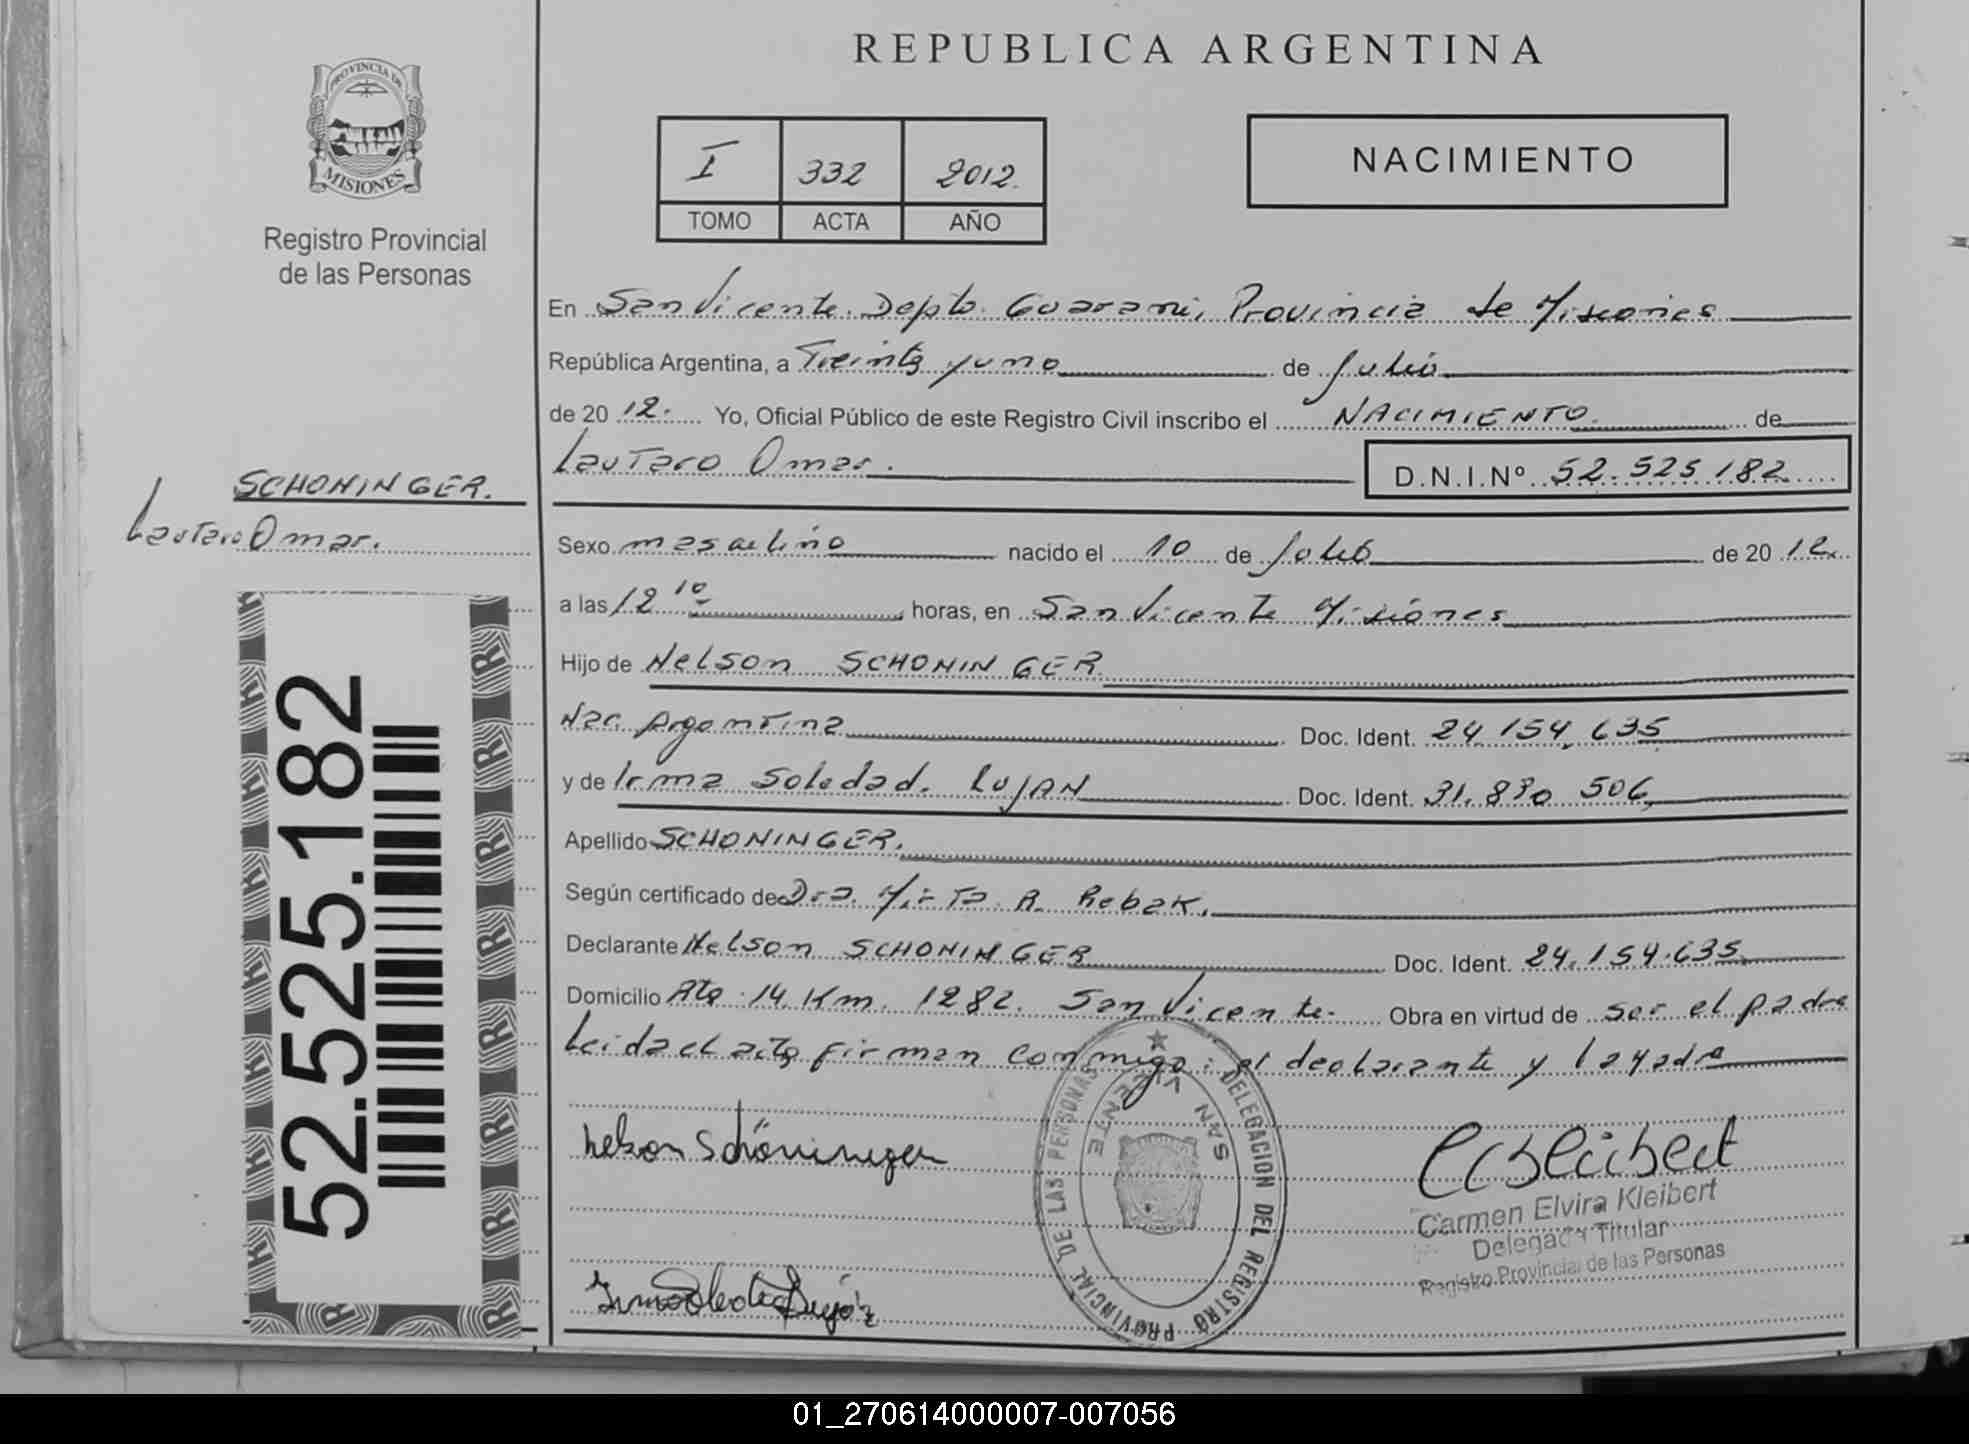 REPUBLICA ARGENTINA
PROVINCIA DE
MISIONES
Registro Provincial
de las Personas
I 332 2012.
TOMO ACTA AÑO
NACIMIENTO
En San Vicente. Depto. Guarani, Provincia de Misiones
República Argentina, a Treinta y uno de Julio
de 20 12. Yo, Oficial Público de este Registro Civil inscribo el NACIMIENTO. de
Lautaro Omar.
D.N.I.Nº 52.525.182
SCHONINGER.
Lautaro Omar.
Sexo masculino nacido el 10 de Julio de 20 12.
a las 12 10 horas, en San Vicente Misiones
Hijo de Nelson SCHONINGER
Nac. Argentina Doc. Ident. 24.154.635
y de Irma Soledad. LUJAN Doc. Ident. 31.830 506
Apellido SCHONINGER.
Según certificado de Dra. Mirta R. Rebak.
Declarante Nelson SCHONINGER Doc. Ident. 24.154.635
Domicilio Rta 14 Km. 1282. San Vicente. Obra en virtud de ser el padre
Leida el acta firman conmigo: el declarante y la madre
52.525.182
Nelson Schöninger
DELEGACION DEL REGISTRO PROVINCIAL DE LAS PERSONAS
SAN VICENTE
Carmen Elvira Kleibert
Delegada Titular
Registro Provincial de las Personas
01_270614000007-007056